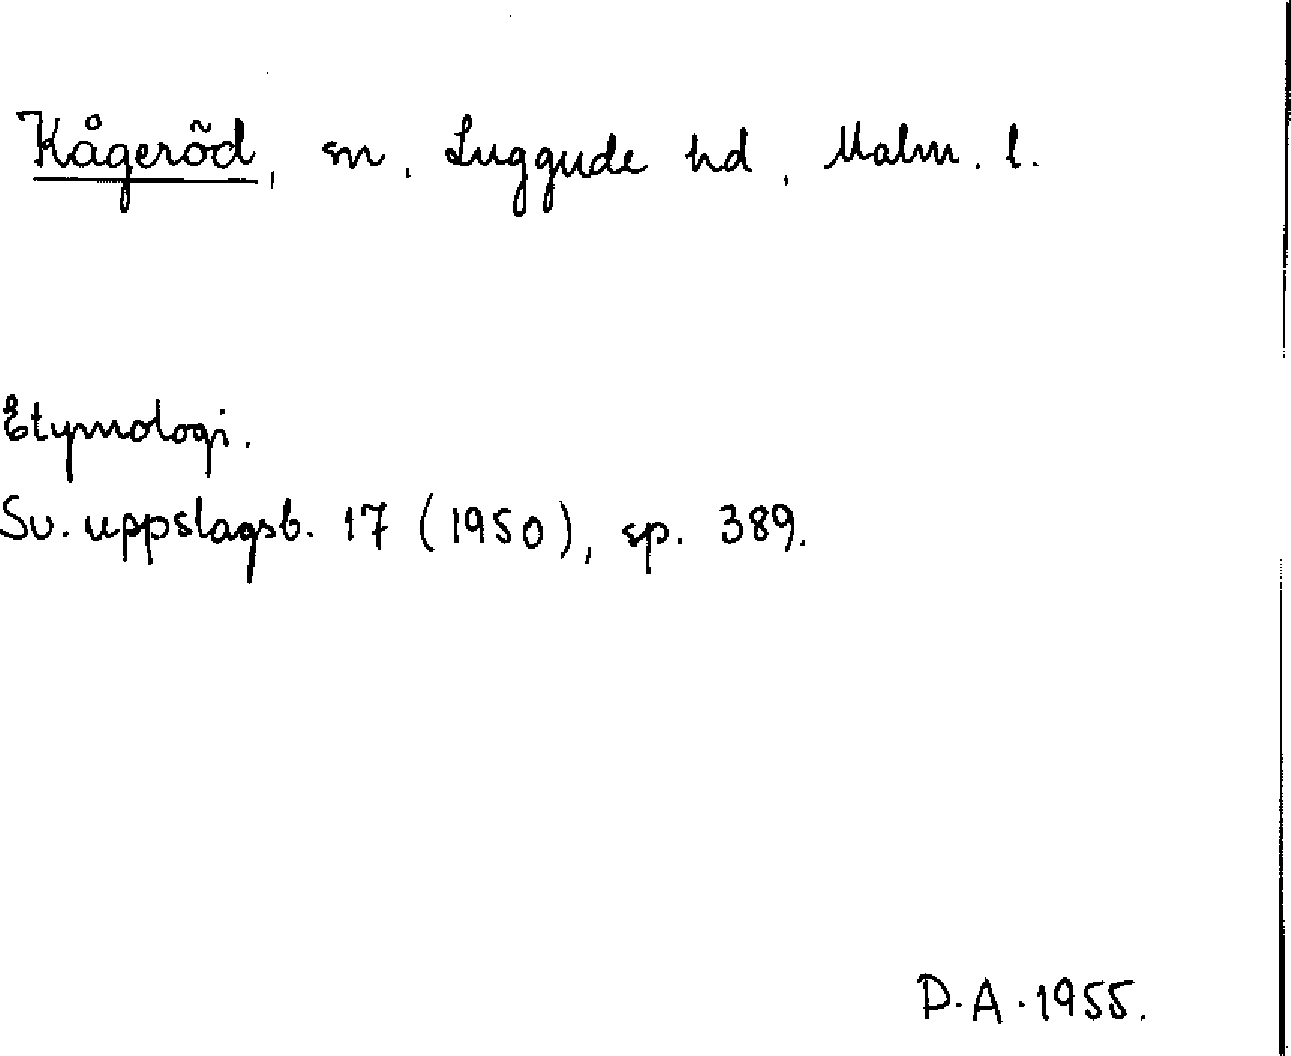 Kågeröd, sn, Luggude hd, Malm. l.
Etymologi.
Sv. uppslagsb. 17 (1950), sp. 389.
D.A. 1955.